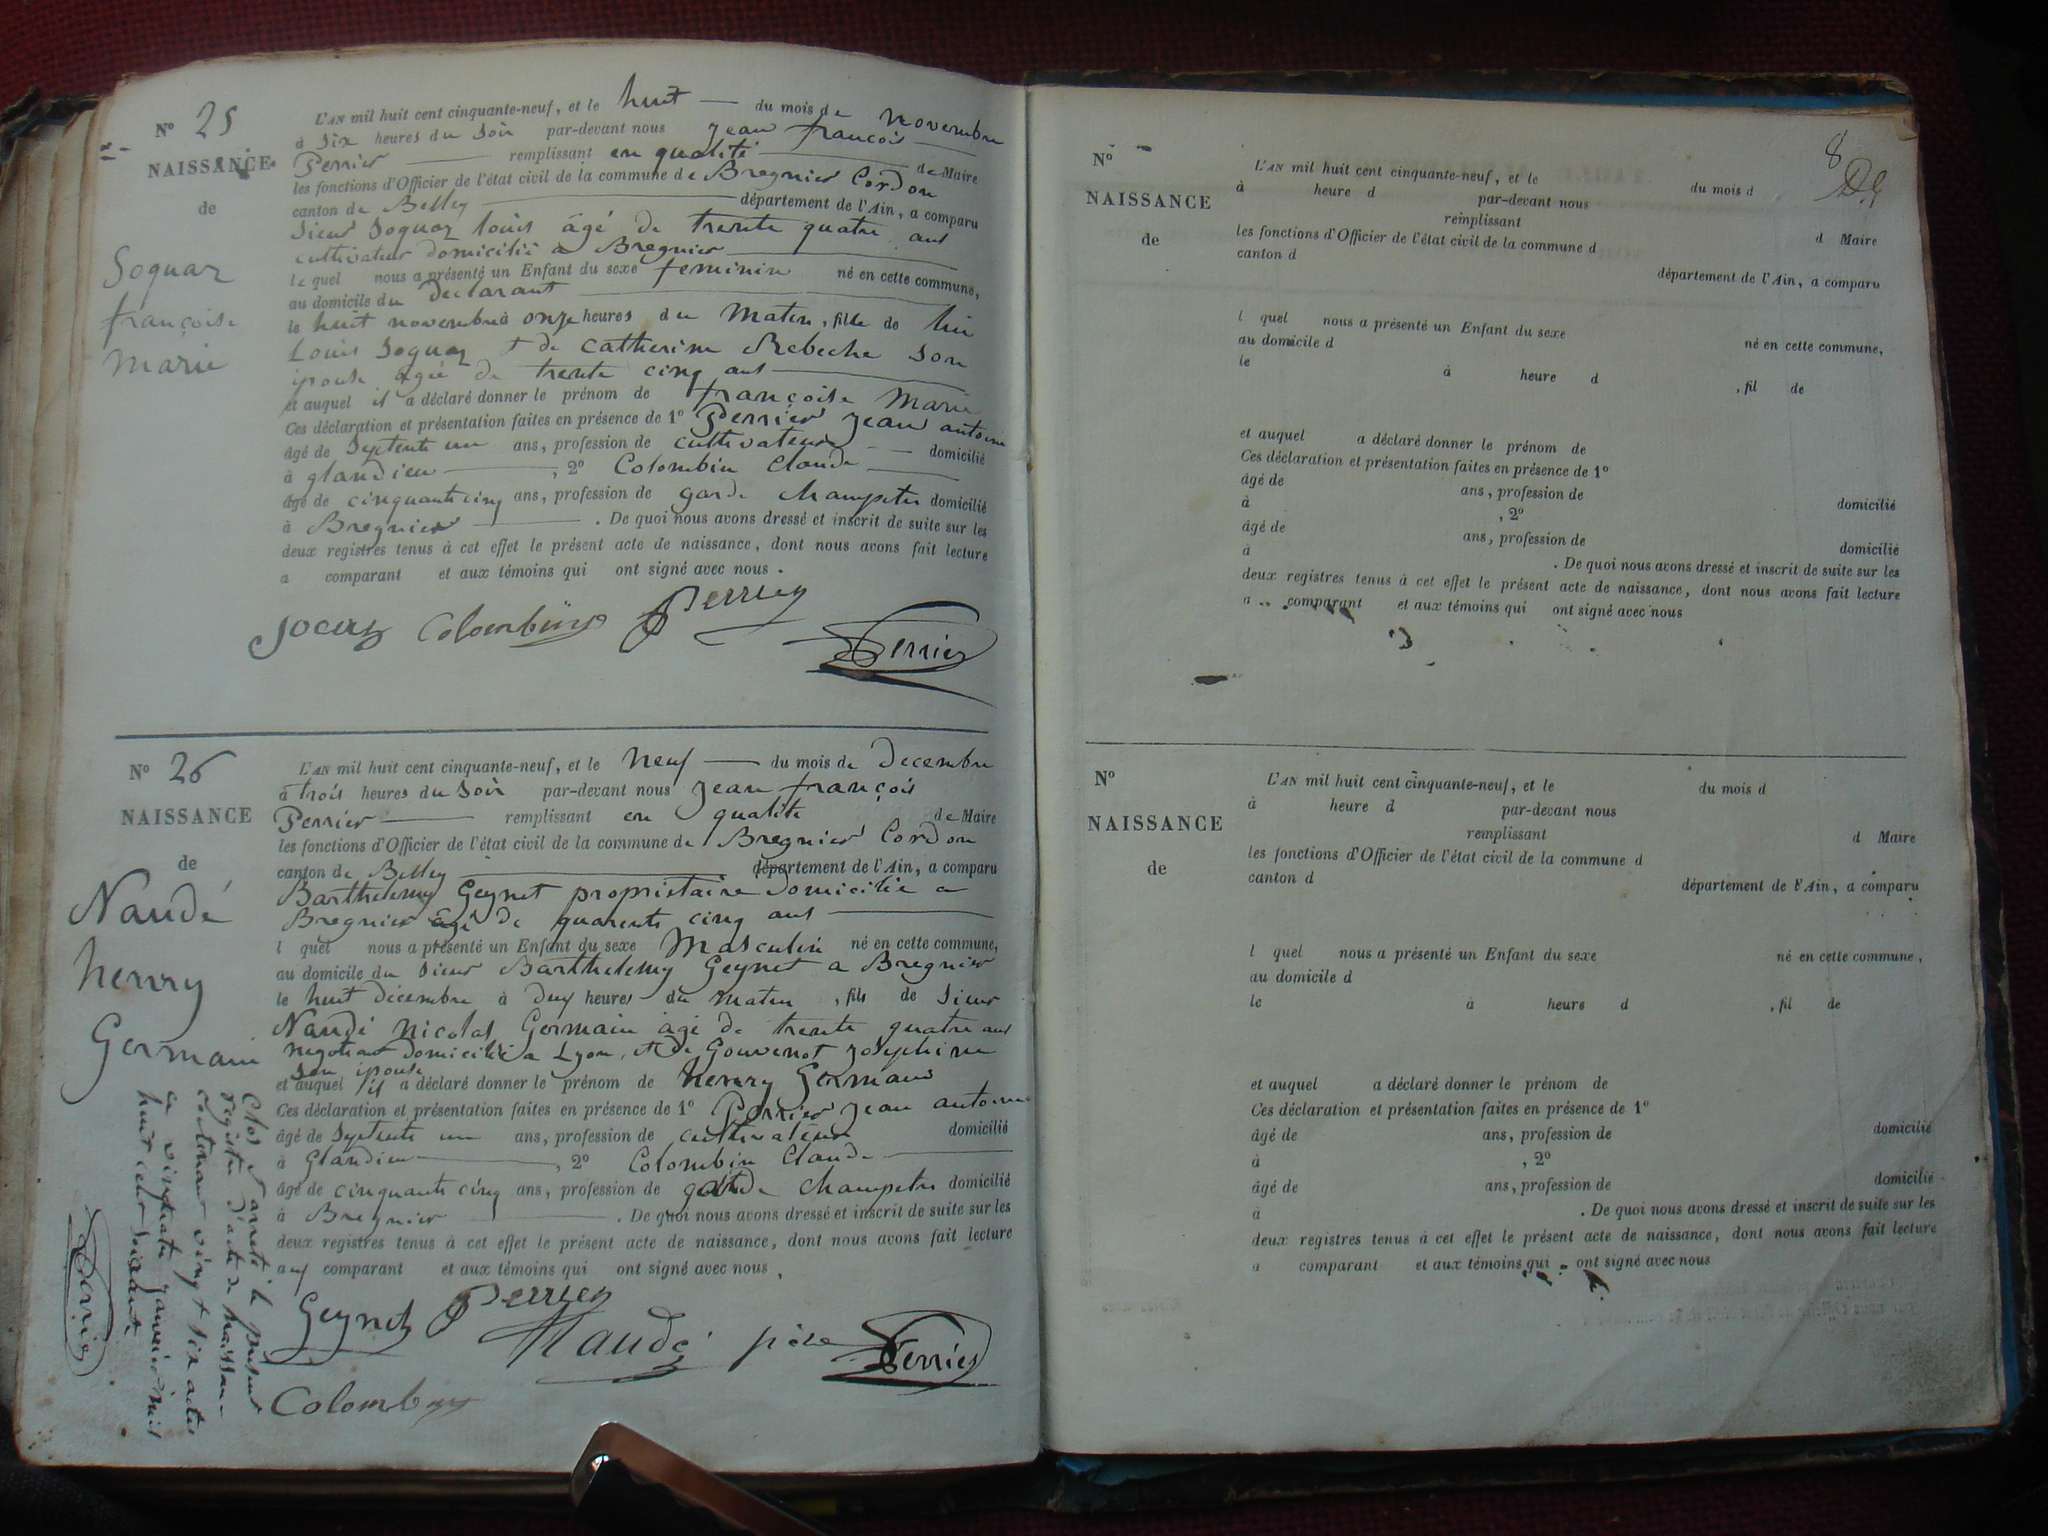 N° 25
NAISSANCE
de
Soquaz
françoise
Marie
L'AN mil huit cent cinquante-neuf, et le huit du mois de novembre
à Six heures du Soir par-devant nous Jean françois
Perrier remplissant en qualité de Maire
les fonctions d'Officier de l'état civil de la commune de Bregnier Cordon
canton de Belley département de l'Ain, a comparu
Sieur Soquaz louis âgé de trente quatre ans
cultivateur domicilié à Bregnier
le quel nous a présenté un Enfant du sexe feminin né en cette commune,
au domicile du declarant
le huit novembre à onze heures du Matin, fille de lui
Louis Soquaz & de Catherine Rebeche Son
épouse âgée de trente cinq ans
et auquel il a déclaré donner le prénom de françoise Marie
Ces déclaration et présentation faites en présence de 1° Perrier Jean antoine
âgé de Septente un ans, profession de cultivateur domicilié
à glandieu, 2° Colombin Claude
âgé de cinquante cinq ans, profession de garde champetre domicilié
à Bregnier. De quoi nous avons dressé et inscrit de suite sur les
deux registres tenus à cet effet le présent acte de naissance, dont nous avons fait lecture
a comparant et aux témoins qui ont signé avec nous.
Colombin Perrier
Perrier
N° 26
NAISSANCE
de
Naudé
henry
Germain
L'AN mil huit cent cinquante-neuf, et le Neuf du mois de Decembre
à trois heures du Soir par-devant nous Jean françois
Perrier remplissant en qualité de Maire
les fonctions d'Officier de l'état civil de la commune de Bregnier Cordon
canton de Belley département de l'Ain, a comparu
Barthelemy Geynet propriétaire domicilié a
Bregnier âgé de quarente cinq ans
l quel nous a présenté un Enfant du sexe Masculin né en cette commune,
au domicile du Sieur Barthelemy Geynet a Bregnier
le huit décembre à deux heures du matin, fils de Sieur
Naudé Nicolas Germain âgé de trente quatre ans
negotiant domicilié a Lyon, et de Gouvenot Josephine
Son épouse
et auquel il a déclaré donner le prénom de henry Germain
Ces déclaration et présentation faites en présence de 1° Perrier Jean antoine
âgé de Septente un ans, profession de cultivateur domicilié
à Glandieu, 2° Colombin Claude
âgé de cinquante cinq ans, profession de garde champetre domicilié
à Bregnier. De quoi nous avons dressé et inscrit de suite sur les
deux registres tenus à cet effet le présent acte de naissance, dont nous avons fait lecture
aux comparant et aux témoins qui ont signé avec nous,
Geynet Perrier
Naudé père Perrier
Colombin
Clos & arreté le présent
registre d'acte de naissance
contenant vingt six actes
ce janvier mil
huit cent soixante
Perrier
8
N°
NAISSANCE
de
L'AN mil huit cent cinquante-neuf, et le du mois d
à heure d par-devant nous
remplissant d Maire
les fonctions d'Officier de l'état civil de la commune d
canton d département de l'Ain, a comparu
l quel nous a présenté un Enfant du sexe né en cette commune,
au domicile d
le à heure d, fil de
et auquel a déclaré donner le prénom de
Ces déclaration et présentation faites en présence de 1°
âgé de ans, profession de domicilié
à, 2°
âgé de ans, profession de domicilié
à. De quoi nous avons dressé et inscrit de suite sur les
deux registres tenus à cet effet le présent acte de naissance, dont nous avons fait lecture
a comparant et aux témoins qui ont signé avec nous
N°
NAISSANCE
de
L'AN mil huit cent cinquante-neuf, et le du mois d
à heure d par-devant nous
remplissant d Maire
les fonctions d'Officier de l'état civil de la commune d
canton d département de l'Ain, a comparu
l quel nous a présenté un Enfant du sexe né en cette commune,
au domicile d
le à heure d, fil de
et auquel a déclaré donner le prénom de
Ces déclaration et présentation faites en présence de 1°
âgé de ans, profession de domicilié
à, 2°
âgé de ans, profession de domicilié
à. De quoi nous avons dressé et inscrit de suite sur les
deux registres tenus à cet effet le présent acte de naissance, dont nous avons fait lecture
a comparant et aux témoins qui ont signé avec nous